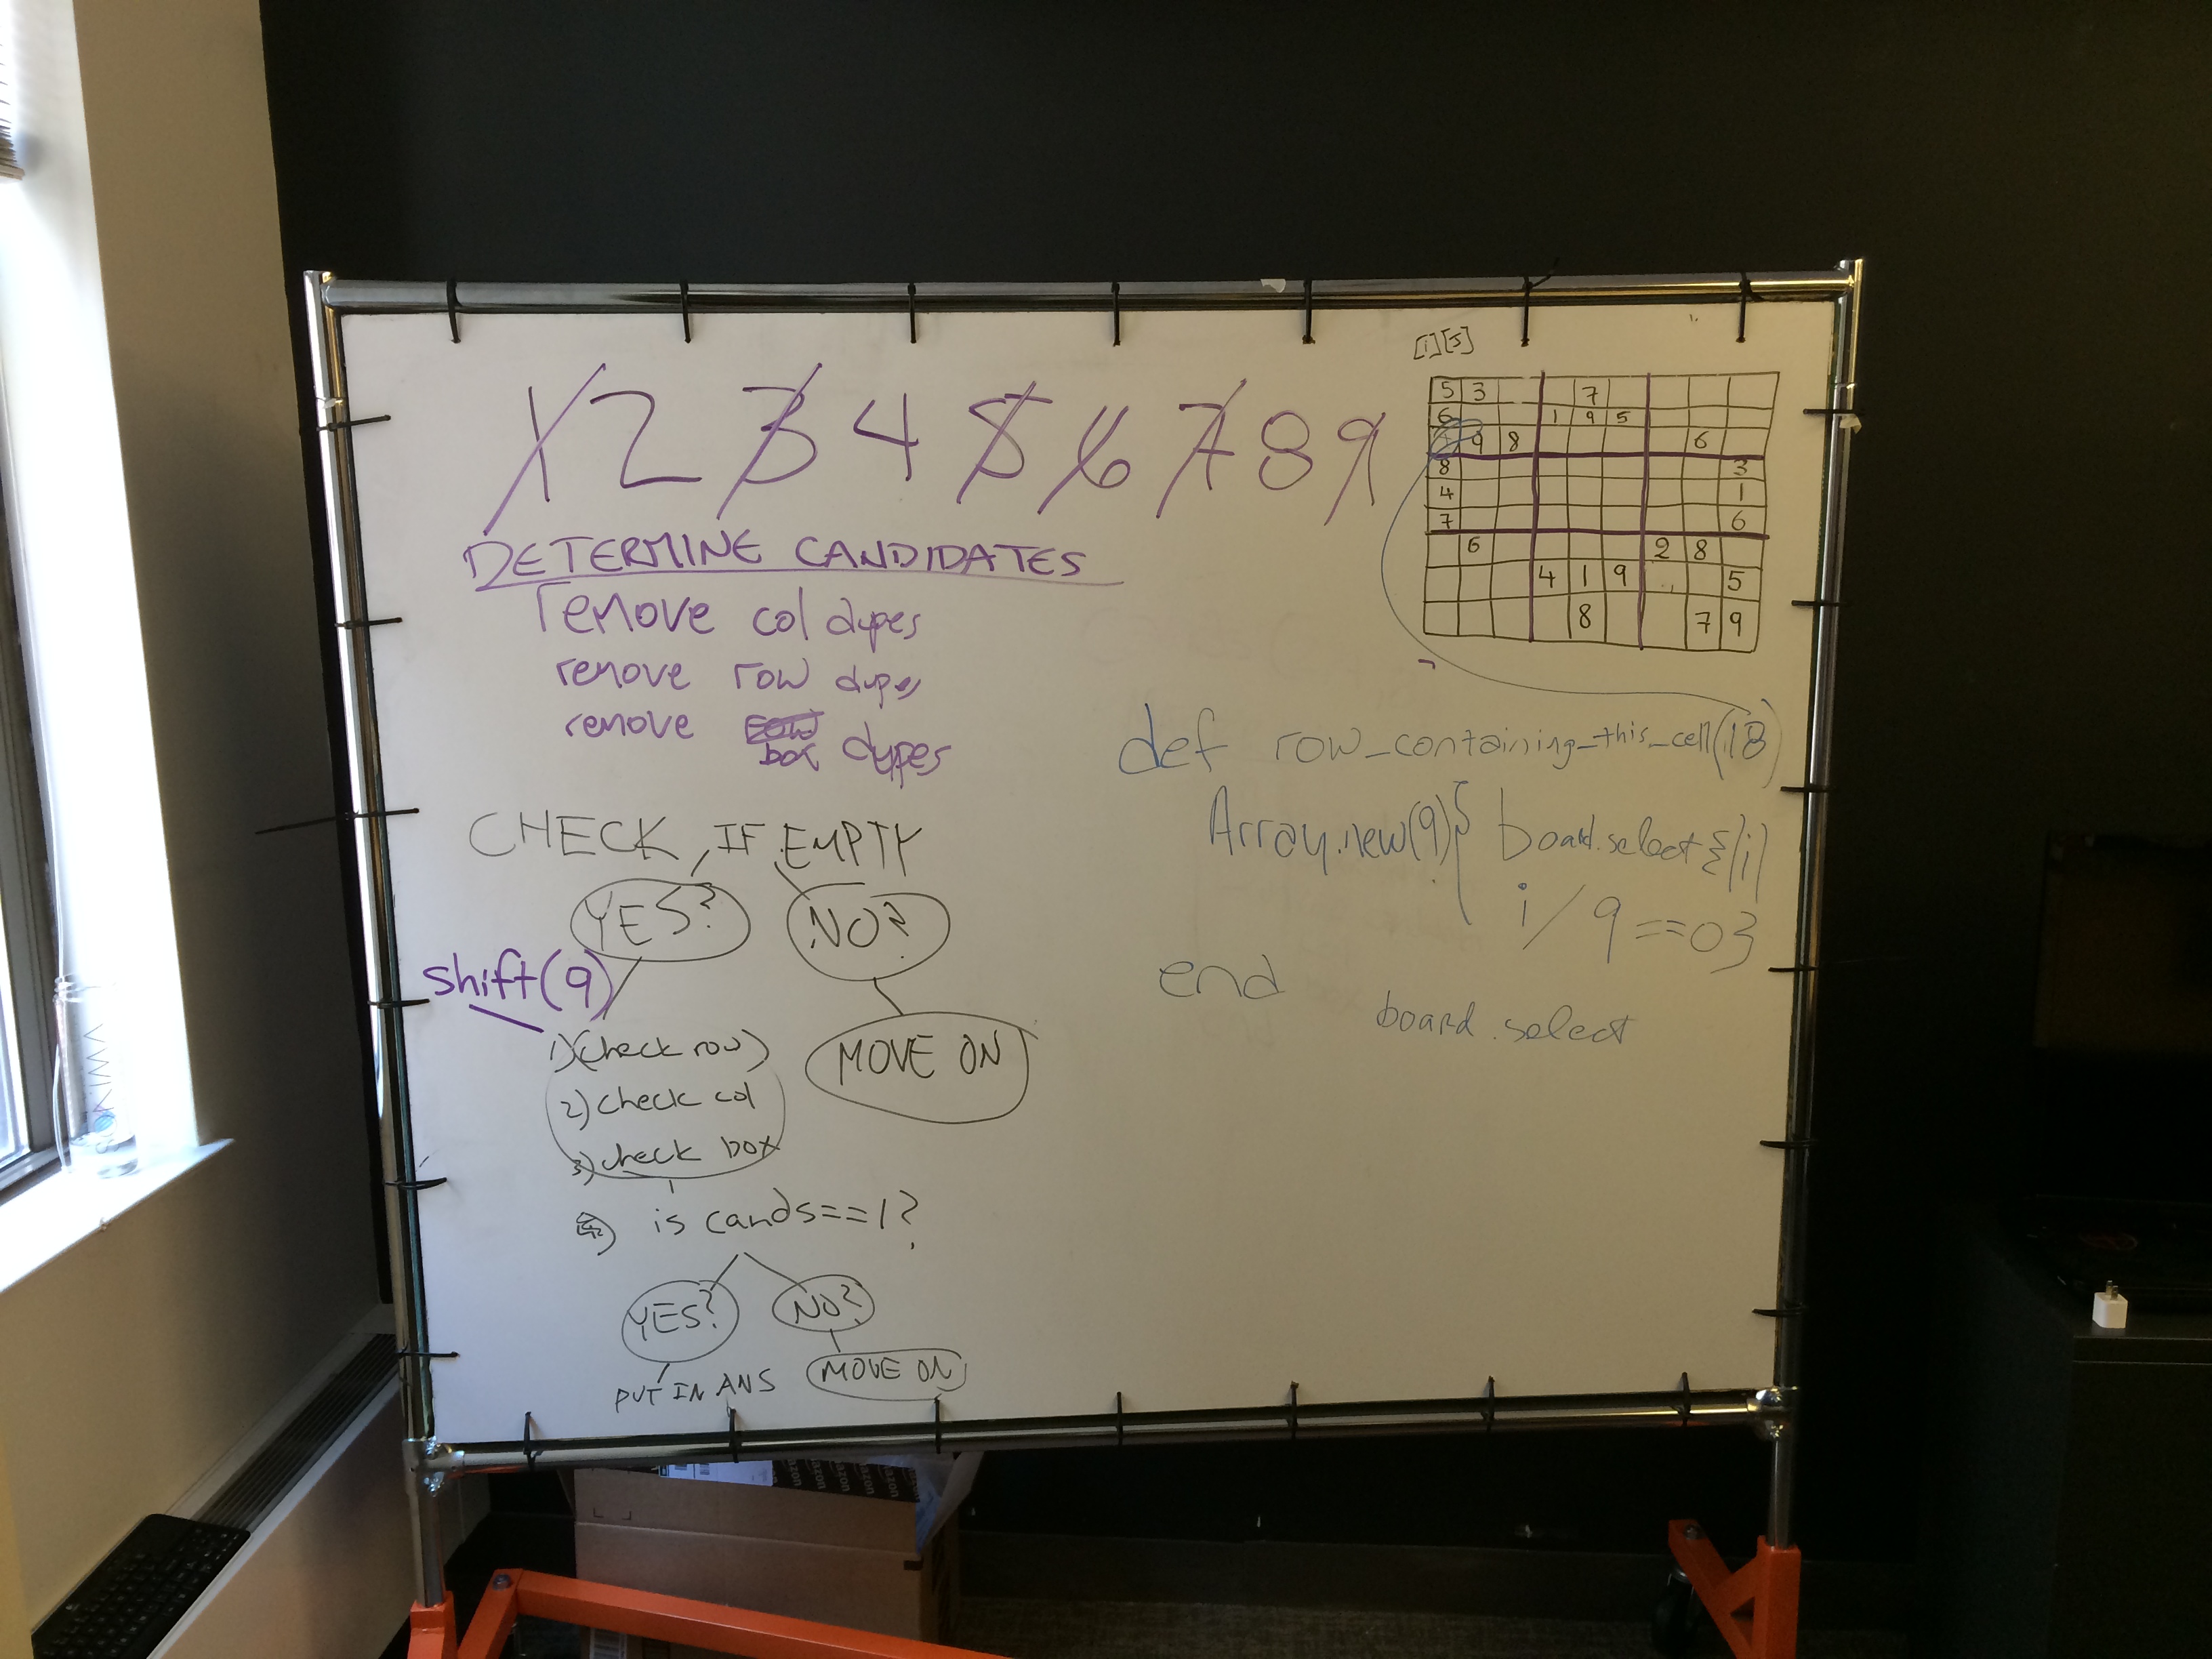 [i][j]
1 2 3 4 5 6 7 8 9
5 3 7
6 1 9 5
9 8 6
8 3
4 1
7 6
6 2 8
4 1 9 5
8 7 9
DETERMINE CANDIDATES
remove col dupes
remove row dupes
remove box dupes
CHECK, IF EMPTY
YES? NO?
shift(9)
1) check row
2) check col
3) check box
MOVE ON
4) is cands==1?
YES? NO?
PUT IN ANS
MOVE ON
def row_containing_this_cell(18)
Array.new(9){ board.select {|i|
i/9==0}
end
board.select
amazon